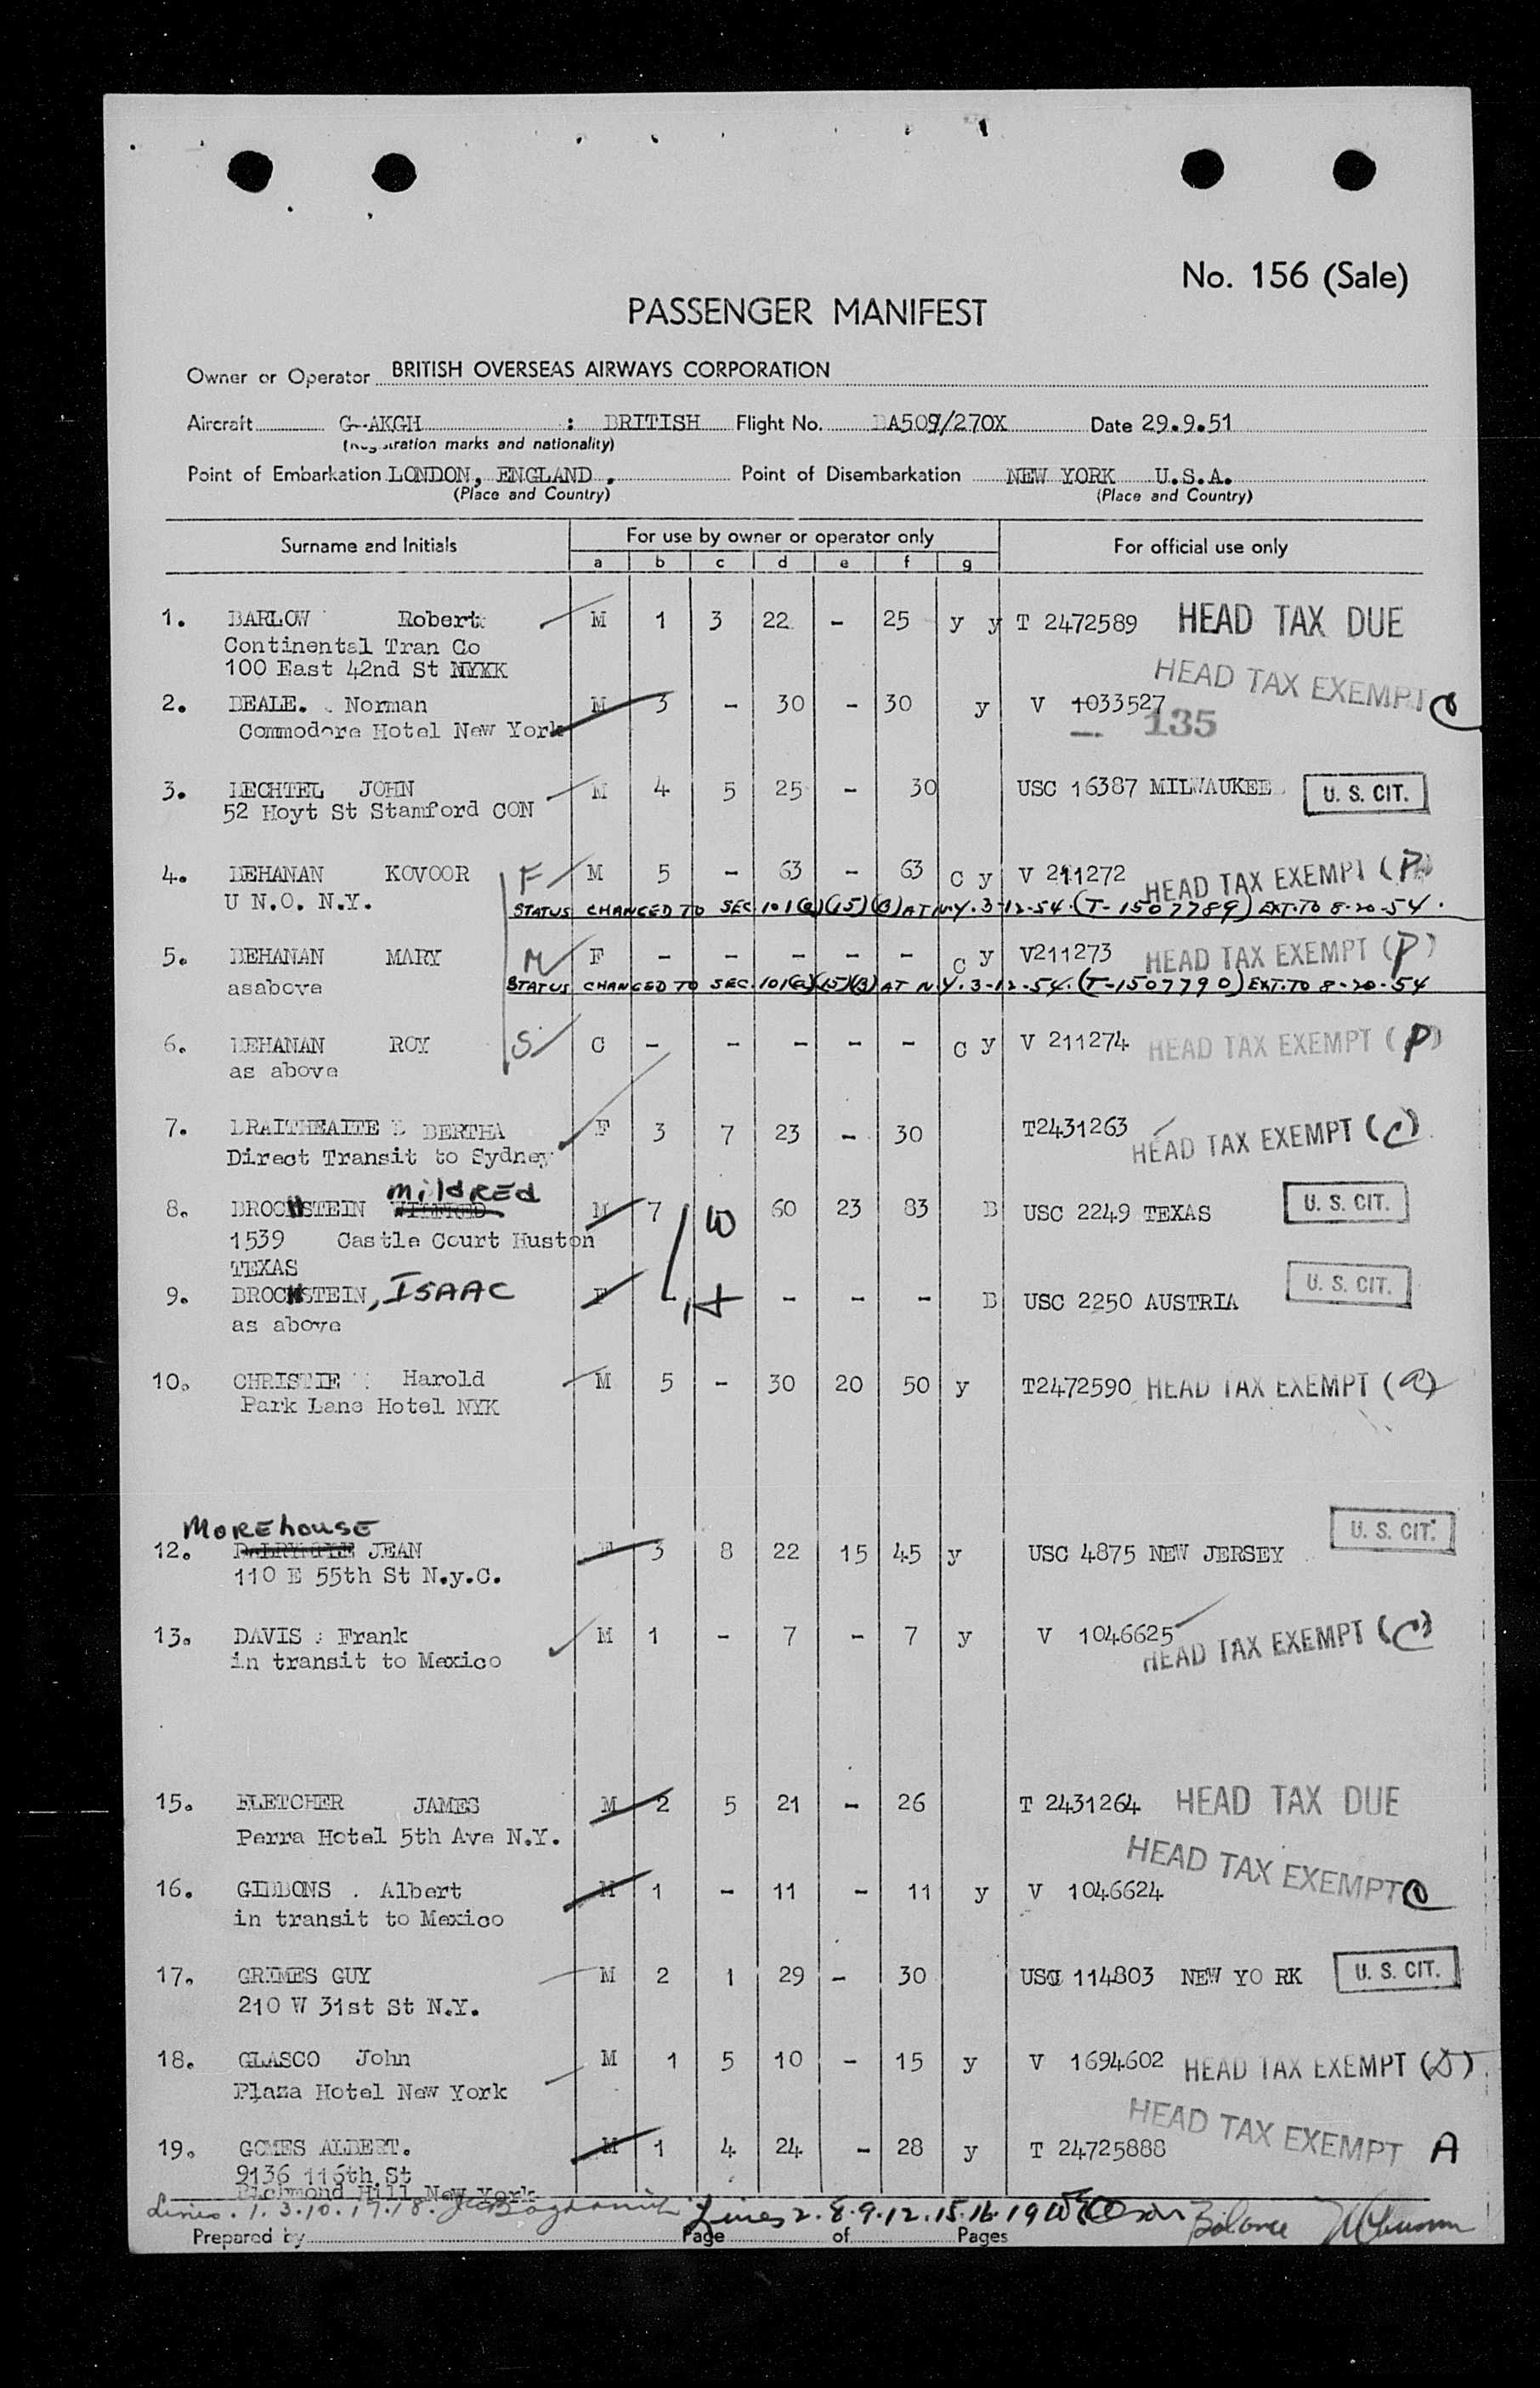 No. 156 (Sale)
PASSENGER MANIFEST
Owner or Operator BRITISH OVERSEAS AIRWAYS CORPORATION
Aircraft G-AKGH : BRITISH Flight No. BA509/270X Date 29.9.51
(Registration marks and nationality)
Point of Embarkation LONDON, ENGLAND. Point of Disembarkation NEW YORK U.S.A.
(Place and Country) (Place and Country)
Surname and Initials For use by owner or operator only For official use only
a b c d e f g
1. BARLOW Robert M 1 3 22 - 25 y y T 2472589 HEAD TAX DUE
Continental Tran Co
100 East 42nd St NYK
HEAD TAX EXEMPT
2. BEALE. Norman M 3 - 30 - 30 y V 1033527
Commodore Hotel New York 135
3. BECHTEL JOHN M 4 5 25 - 30 USC 16387 MILWAUKEE U. S. CIT.
52 Hoyt St Stamford CON
4. BEHANAN KOVOOR F M 5 - 63 - 63 C y V 211272 HEAD TAX EXEMPT (P)
U N.O. N.Y.
STATUS CHANGED TO SEC.101(a)(15)(B) AT N.Y. 3-12-54. (T-1507789) EXT.TO 8-20-54.
5. BEHANAN MARY M F - - - - - C y V211273 HEAD TAX EXEMPT (P)
asabove
STATUS CHANGED TO SEC.101(a)(15)(B) AT N.Y. 3-12-54. (T-1507790) EXT.TO 8-20-54
6. BEHANAN ROY S C - - - - - C y V 211274 HEAD TAX EXEMPT (P)
as above
7. BRAITHEAITE BERTHA F 3 7 23 - 30 T2431263
Direct Transit to Sydney HEAD TAX EXEMPT (C)
MildRED
8. BROCHSTEIN WILFRED M 7 W 60 23 83 B USC 2249 TEXAS U. S. CIT.
1539 Castle Court Huston
TEXAS
9. BROCHSTEIN, ISAAC F - H - - - B USC 2250 AUSTRIA U. S. CIT.
as above
10. CHRISTIE Harold M 5 - 30 20 50 y T2472590 HEAD TAX EXEMPT (a)
Park Lane Hotel NYK
MOREhOUSE
12. JEAN F 3 8 22 15 45 y USC 4875 NEW JERSEY U. S. CIT.
110 E 55th St N.y.C.
13. DAVIS Frank M 1 - 7 - 7 y V 1046625
in transit to Mexico HEAD TAX EXEMPT (C)
15. FLETCHER JAMES M 2 5 21 - 26 T 2431264 HEAD TAX DUE
Perra Hotel 5th Ave N.Y.
HEAD TAX EXEMPT
16. GIBBONS. Albert M 1 - 11 - 11 y V 1046624
in transit to Mexico
17. GRIMES GUY M 2 1 29 - 30 USC 114803 NEW YO RK U. S. CIT.
210 W 31st St N.Y.
18. GLASCO John M 1 5 10 - 15 y V 1694602 HEAD TAX EXEMPT (D)
Plaza Hotel New York
HEAD TAX EXEMPT A
19. GOMES ALBERT. M 1 4 24 - 28 y T 24725888
9136 116th St
Richmond Hill New York
Lines. 1. 3. 10. 17. 18. Lines 2. 8. 9. 12. 15. 16. 19 Balance
Prepared by Page of Pages